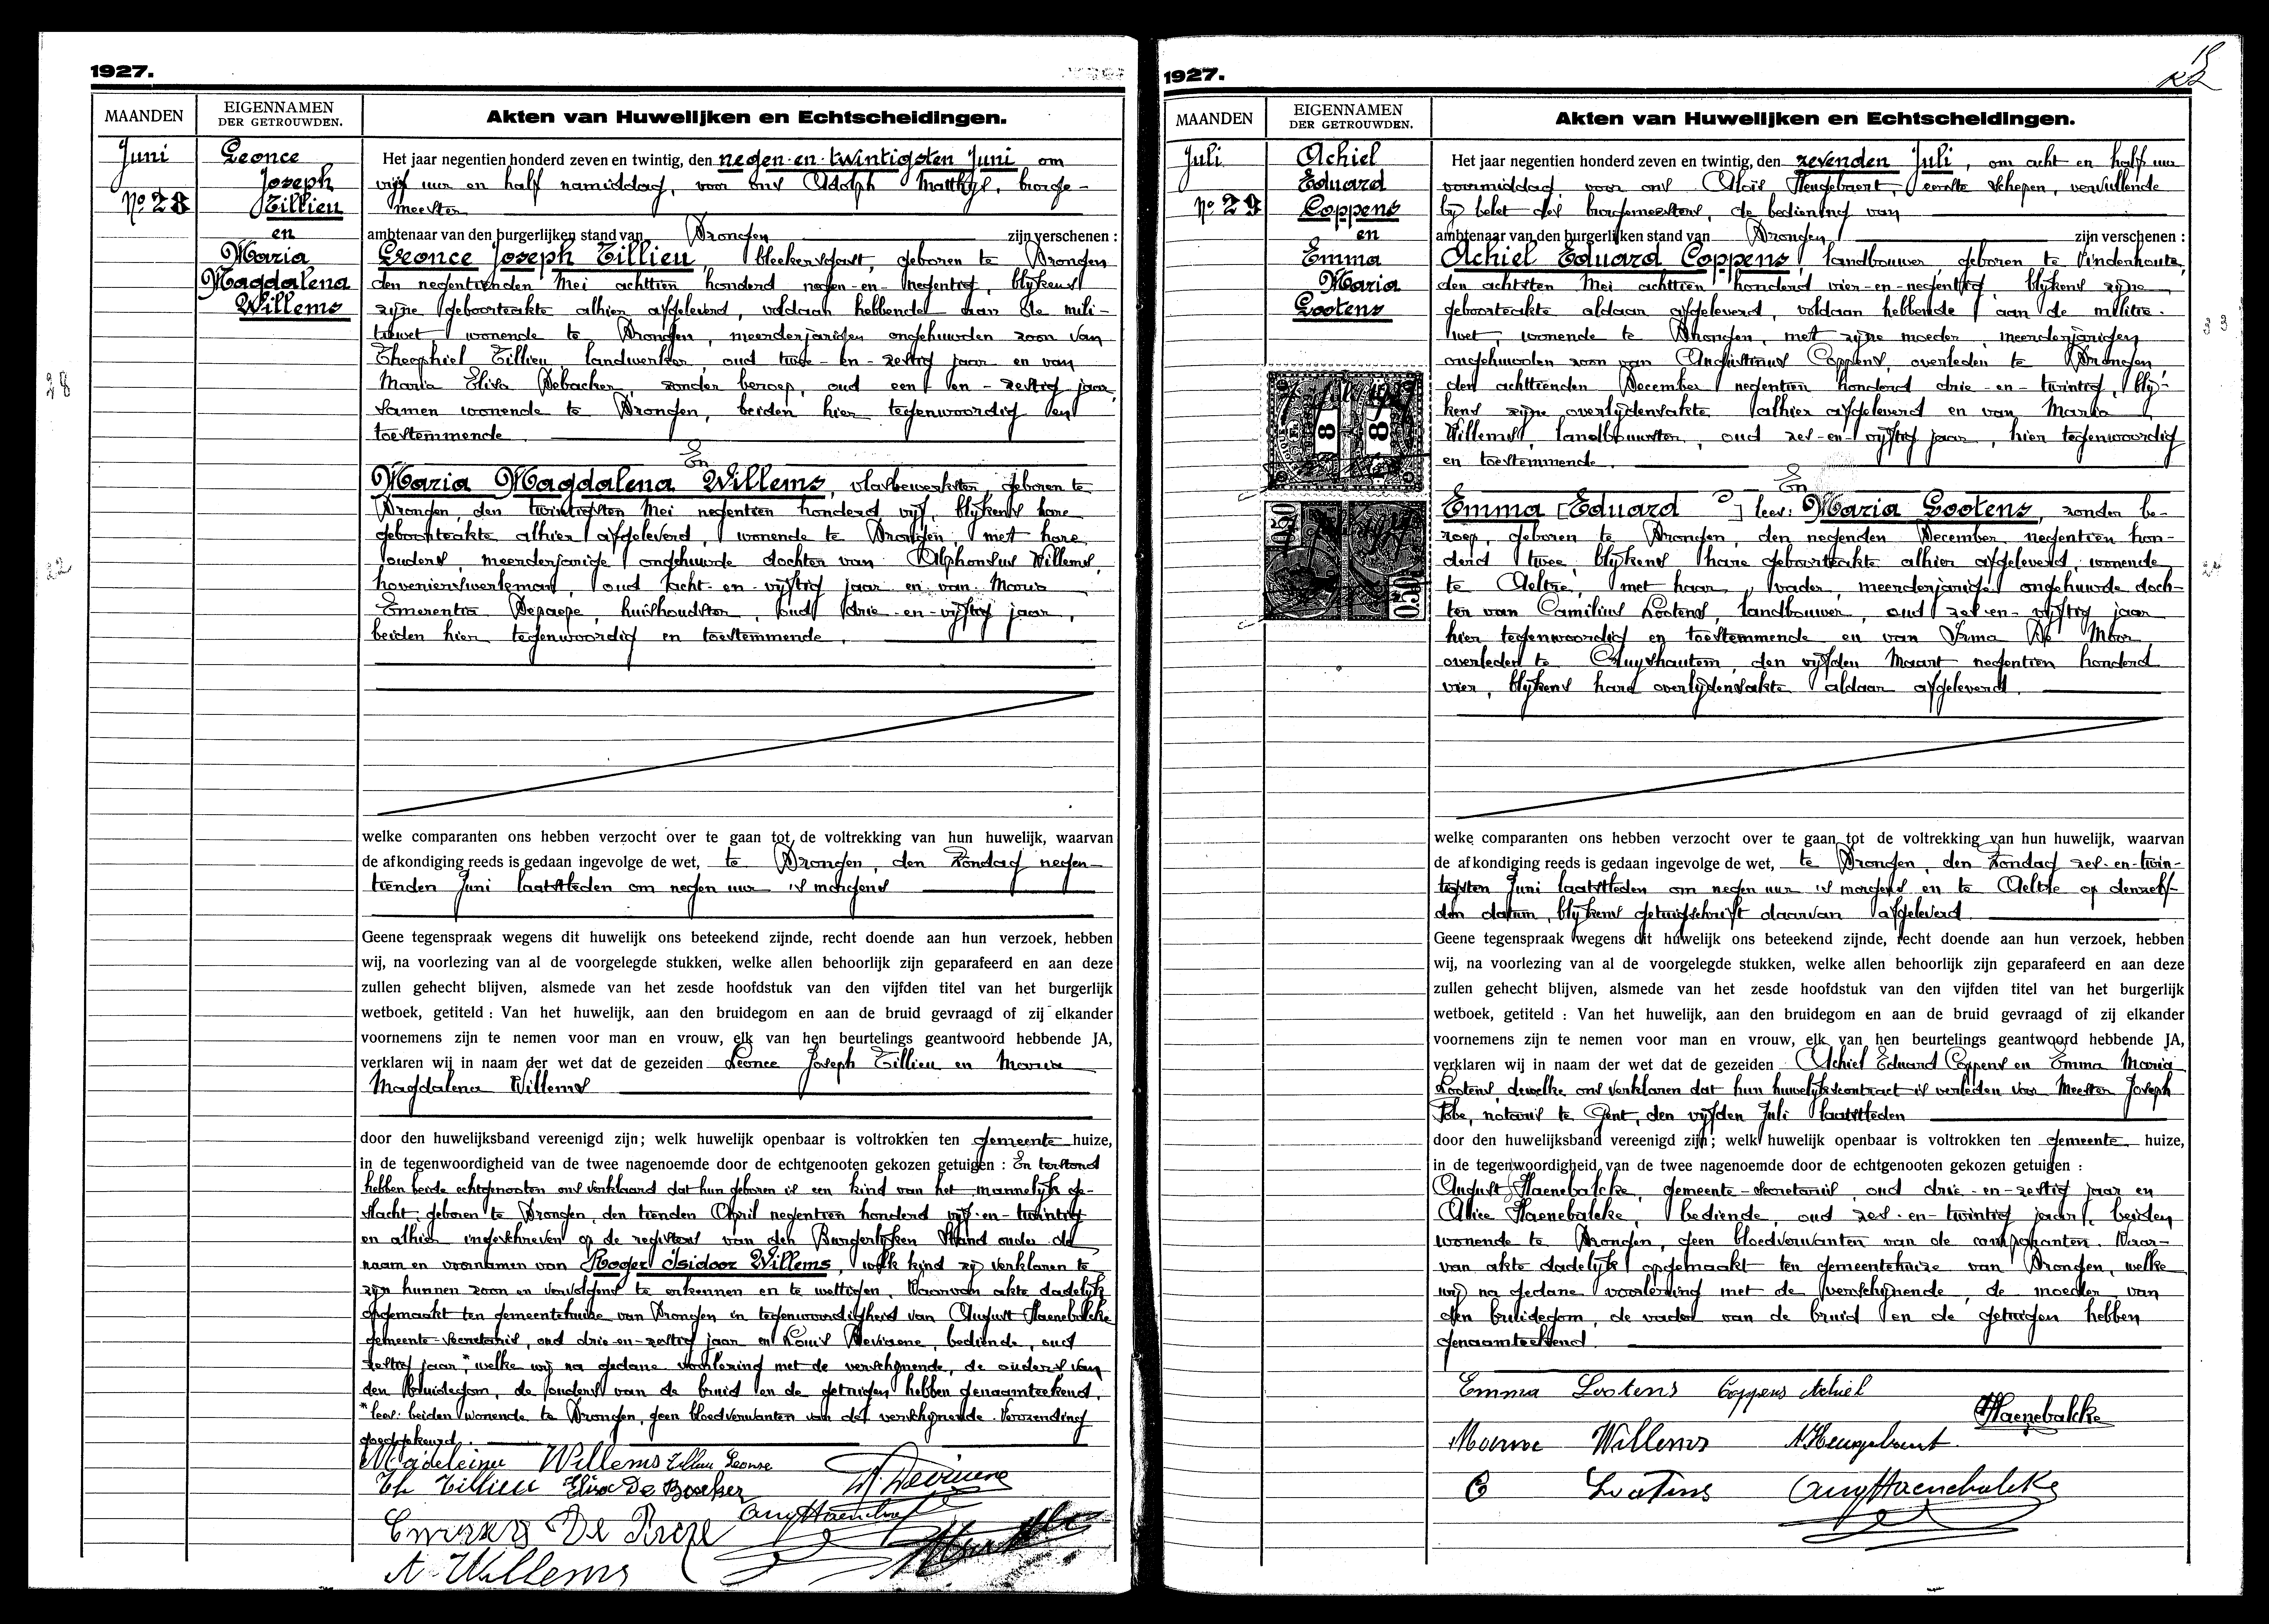 1927.
MAANDEN
EIGENNAMEN
DER GETROUWDEN.
Akten van Huwelijken en Echtscheidingen.
Juni
Nº 28
Leonce
Joseph
Tillieu
en
Maria
Magdalena
Willems
Het jaar negentien honderd zeven en twintig, den negen-en-twintigsten Juni om
vijf uur en half namiddag, voor ons Adolph Matthys, burge-
meester
ambtenaar van den burgerlijken stand van Drongen zijn verschenen :
Leonce Joseph Tillieu, bleekersgast, geboren te Drongen
den negentienden Mei achttien honderd negen-en-negentig, blijkens
zijne geboorteakte alhier afgeleverd, voldaan hebbende aan de mili-
tiewet wonende te Drongen, meerderjarigen ongehuwden zoon van
Theophiel Tillieu landwerker, oud twee-en-zestig jaar en van
Maria Elisa Debacker, zonder beroep, oud een en-zestig jaar,
samen wonende te Drongen, beiden hier tegenwoordig en
toestemmende
En
Maria Magdalena Willems, vlasbewerkster, geboren te
Drongen, den twintigsten Mei negentien honderd vijf, blijkens hare
geboorteakte alhier afgeleverd, wonende te Drongen, met hare
ouders, meerderjarige ongehuwde dochter van Alphonsus Willems,
hovenierswerkman, oud acht-en-vijftig jaar en van Maria
Emerentia Depaepe, huishoudster, oud drie-en-vijftig jaar,
beiden hier tegenwoordig en toestemmende.
welke comparanten ons hebben verzocht over te gaan tot de voltrekking van hun huwelijk, waarvan
de afkondiging reeds is gedaan ingevolge de wet, te Drongen, den Zondag negen-
tienden Juni laatstleden om negen uur 's morgens
Geene tegenspraak wegens dit huwelijk ons beteekend zijnde, recht doende aan hun verzoek, hebben
wij, na voorlezing van al de voorgelegde stukken, welke allen behoorlijk zijn geparafeerd en aan deze
zullen gehecht blijven, alsmede van het zesde hoofdstuk van den vijfden titel van het burgerlijk
wetboek, getiteld : Van het huwelijk, aan den bruidegom en aan de bruid gevraagd of zij elkander
voornemens zijn te nemen voor man en vrouw, elk van hen beurtelings geantwoord hebbende JA,
verklaren wij in naam der wet dat de gezeiden Leonce Joseph Tillieu en Maria
Magdalena Willems
door den huwelijksband vereenigd zijn; welk huwelijk openbaar is voltrokken ten gemeente huize,
in de tegenwoordigheid van de twee nagenoemde door de echtgenooten gekozen getuigen : En terstond
hebben beide echtgenooten ons verklaard dat hun geboren is een kind van het mannelijk ge-
slacht, geboren te Drongen, den tienden April negentien honderd vijf-en-twintig
en alhier ingeschreven op de registers van den Burgerlijken Stand onder de
naam en voornamen van Roger Isidoor Willems, welk kind zij verklaren te
zijn hunnen zoon en vervolgens te erkennen en te wettigen. Waarvan akte dadelijk
opgemaakt ten gemeentehuize van Drongen in tegenwoordigheid van August Haenebalcke
gemeente-secretaris, oud drie-en-zestig jaar en Louis Deviaene, bediende, oud
zestig jaar," welke wij na gedane voorlezing met de verschijnende, de ouders van
den bruidegom, de ouders van de bruid en de getuigen hebben genaamteekend.
"lees: beiden wonende te Drongen, geen bloedverwanten van de verschijnende. Verzending
goedgekeurd.
Madeleine Willems Tillieu Leonce
Th Tillieu Elisa De Backer
A. Willems
1927.
MAANDEN
EIGENNAMEN
DER GETROUWDEN.
Akten van Huwelijken en Echtscheidingen.
Juli
Nº 29
Achiel
Eduard
Coppens
en
Emma
Maria
Lootens
Het jaar negentien honderd zeven en twintig, den zevenden Juli, om acht en half uur
voormiddag, voor ons Aloïs Heugebaert, eerste schepen, vervullende
bij belet des burgemeesters, de bediening van
ambtenaar van den burgerlijken stand van Drongen zijn verschenen :
Achiel Eduard Coppens, landbouwer, geboren te Vinderhoute,
den achtsten Mei achttien honderd vier-en-negentig, blijkens zijne
geboorteakte aldaar afgeleverd, voldaan hebbende aan de militie-
wet, wonende te Drongen, met zijne moeder, meerderjarigen
ongehuwden zoon van Augustinus Coppens, overleden te Drongen,
den achttienden December negentien honderd drie-en-twintig, blij-
kens zijne overlijdensakte alhier afgeleverd en van Maria
Willems, landbouwster, oud zes-en-vijftig jaar, hier tegenwoordig
en toestemmende.
En
Emma [Eduard ] lees: Maria Lootens, zonder be-
roep, geboren te Drongen, den negenden December negentien hon-
derd twee, blijkens hare geboorteakte alhier afgeleverd, wonende
te Aeltre, met haar vader, meerderjarige ongehuwde doch-
ter van Camilius Lootens, landbouwer, oud zes-en-vijftig jaar
hier tegenwoordig en toestemmende en van Irma De Moor
overleden te Cruyshautem, den vijfden Maart negentien honderd
vier, blijkens hare overlijdensakte aldaar afgeleverd.
welke comparanten ons hebben verzocht over te gaan tot de voltrekking van hun huwelijk, waarvan
de afkondiging reeds is gedaan ingevolge de wet, te Drongen, den Zondag zes-en-twin-
tigsten Juni laatstleden om negen uur 's morgens en te Aeltre op denzelf-
den datum, blijkens getuigschrift daarvan afgeleverd
Geene tegenspraak wegens dit huwelijk ons beteekend zijnde, recht doende aan hun verzoek, hebben
wij, na voorlezing van al de voorgelegde stukken, welke allen behoorlijk zijn geparafeerd en aan deze
zullen gehecht blijven, alsmede van het zesde hoofdstuk van den vijfden titel van het burgerlijk
wetboek, getiteld : Van het huwelijk, aan den bruidegom en aan de bruid gevraagd of zij elkander
voornemens zijn te nemen voor man en vrouw, elk van hen beurtelings geantwoord hebbende JA,
verklaren wij in naam der wet dat de gezeiden Achiel Eduard Coppens en Emma Maria
Lootens, dewelke ons verklaren dat hun huwelijkscontract is verleden voor Meester Joseph
Fobe, notaris te Gent, den vijfden Juli laatstleden
door den huwelijksband vereenigd zijn; welk huwelijk openbaar is voltrokken ten gemeente huize,
in de tegenwoordigheid van de twee nagenoemde door de echtgenooten gekozen getuigen :
August Haenebalcke, gemeente-secretaris, oud drie-en-zestig jaar en
Alice Haenebalcke, bediende, oud zes-en-twintig jaar, beiden
wonende te Drongen, geen bloedverwanten van de comparanten. Waar-
van akte dadelijk opgemaakt ten gemeentehuize van Drongen, welke
wij na gedane voorlezing met de verschijnende, de moeder van
den bruidegom, de vader van de bruid en de getuigen hebben
genaamteekend.
Emma Lootens Coppens Achiel
Haenebalcke
Willems A. Heugebaert
C Lootens Aug Haenebalcke